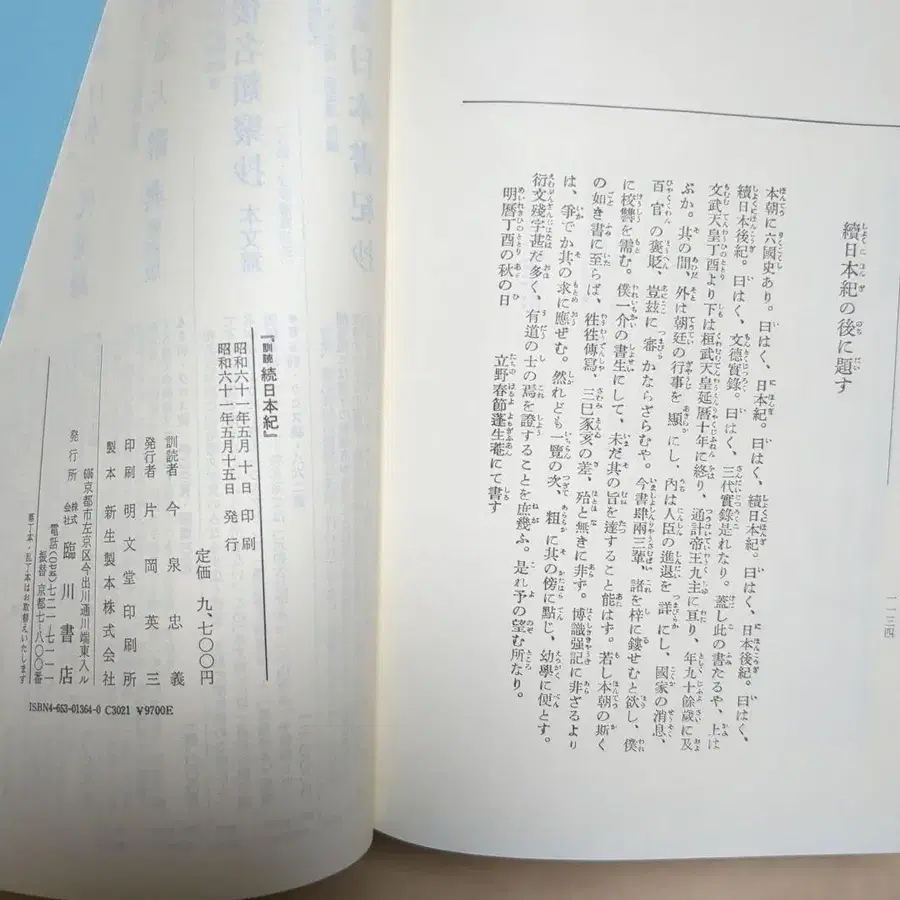 一一三四
續日本紀の後に題す
本朝に六國史あり。曰はく、日本紀。曰はく、續日本紀。曰はく、日本後紀。曰はく、
續日本後紀。曰はく、文德實錄。曰はく、三代實錄是れなり。蓋し此の書たるや、上は
文武天皇丁酉より下は桓武天皇延曆十年に終り、通計帝王九主に亙り、年九十餘歲に及
ぶか。其の間、外は朝廷の行事を顯にし、內は人臣の進退を詳にし、國家の消息、
百官の褒貶、豈玆に審かならさらむや。今書肆兩三輩、諸を梓に鏤せむと欲し、僕
に校讐を需む。僕一介の書生にして、未だ其の旨を達すること能はす。若し本朝の斯く
の如き書に至らば、徃徃傳寫、三巳豕亥の差、殆と無きに非ず。博識强記に非ざるより
は、爭でか其の求に應ぜむ。然れども一覽の次、粗其の傍に點じ、幼學に便とす。
衍文殘字甚だ多く、有道の士の焉を證することを庶幾ふ。是れ予の望む所なり。
明曆丁酉の秋の日 立野春節蓬生菴にて書す
『訓読 続日本紀』
昭和六十一年五月十日 印刷
昭和六十一年五月十五日 発行
定価 九、七〇〇円
訓読者 今泉忠義
発行者 片岡英三
印刷 明文堂印刷所
製本 新生製本株式会社
京都市左京区今出川通川端東入ル
発行所 株式会社 臨川書店
電話(〇七五)七二一-七一一一
振替 京都七-八〇〇番
落丁本・乱丁本はお取替えいたします
ISBN4-653-01364-0 C3021 ¥9700E